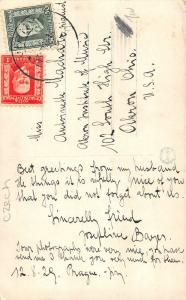 Miss
Antoinette
Akron Institute of Music
102 South High Str.
Akron Ohio.
U.S.A.
Best greetings from my husband
he things it is well nice of you
that you did not forget about us.
Sincerelly friend
Josephine Bayer
Your photographs were very nice, you have
send me I thank you very much for them.
12.8.29. Prague.
CZECH